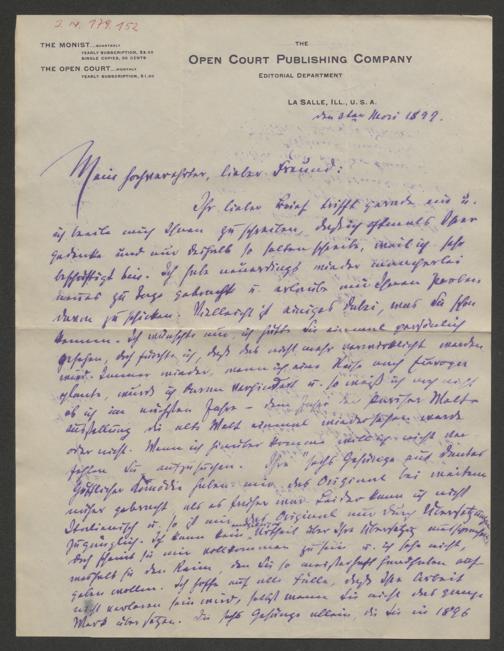 J. N. 179.452
THE MONIST...QUARTERLY
YEARLY SUBSCRIPTION, $2.00
SINGLE COPIES, 50 CENTS
THE OPEN COURT...MONTHLY
YEARLY SUBSCRIPTION, $1.00
THE
OPEN COURT PUBLISHING COMPANY
EDITORIAL DEPARTMENT
LA SALLE, ILL., U. S. A.
den 3ten März 1899.
Mein hochverehrter, lieber Freund:
Ihr lieber Brief trifft gerade ein u.
ich beeile mich Ihnen zu schreiben, daß ich oftmals Ihrer
gedenke und nur deshalb so selten schreibe, weil ich sehr
beschäftigt bin. Ich habe neuerdings wieder mancherlei
neues zu Tage gebracht u. erlaube mir Ihnen Proben
davon zu schicken. Vielleicht ist einiges dabei, was Sie schon
kennen. Ich wünschte nur, ich hätte Sie einmal persönlich
gesehen, doch fürchte ich, daß das nicht mehr verwirklicht werden
wird. Immer wieder, wenn ich eine Reise nach Europa
plante, wurde ich daran verhindert u. so weiß ich auch nicht
ob ich im nächsten Jahre – dem Jahr der Pariser Welt-
ausstellung die alte Welt einmal wiedersehen werde
oder nicht. Wenn ich hinüber komme will ich nicht ver-
fehlen Sie aufzusuchen. Ihre "sechs Gesänge aus Dantes
Göttlicher Comödie haben mir das Original bei weitem
näher gebracht als es früher war. Leider kann ich nicht
Italienisch u. so ist mir das Original nur durch Übersetzungen
zugänglich. Ich kann kein Urtheil über Ihre Übersetzung aussprechen
doch scheint sie mir vollkommen zu sein u. ich sehe nicht,
weshalb Sie den Reim, den Sie so meisterhaft handhaben auf-
geben wollen. Ich hoffe auf alle Fälle, daß Ihre Arbeit
nicht verloren sein wird, selbst wenn Sie nicht das ganze
Werk übersetzen. Die sechs Gesänge allein, die Sie in 1896